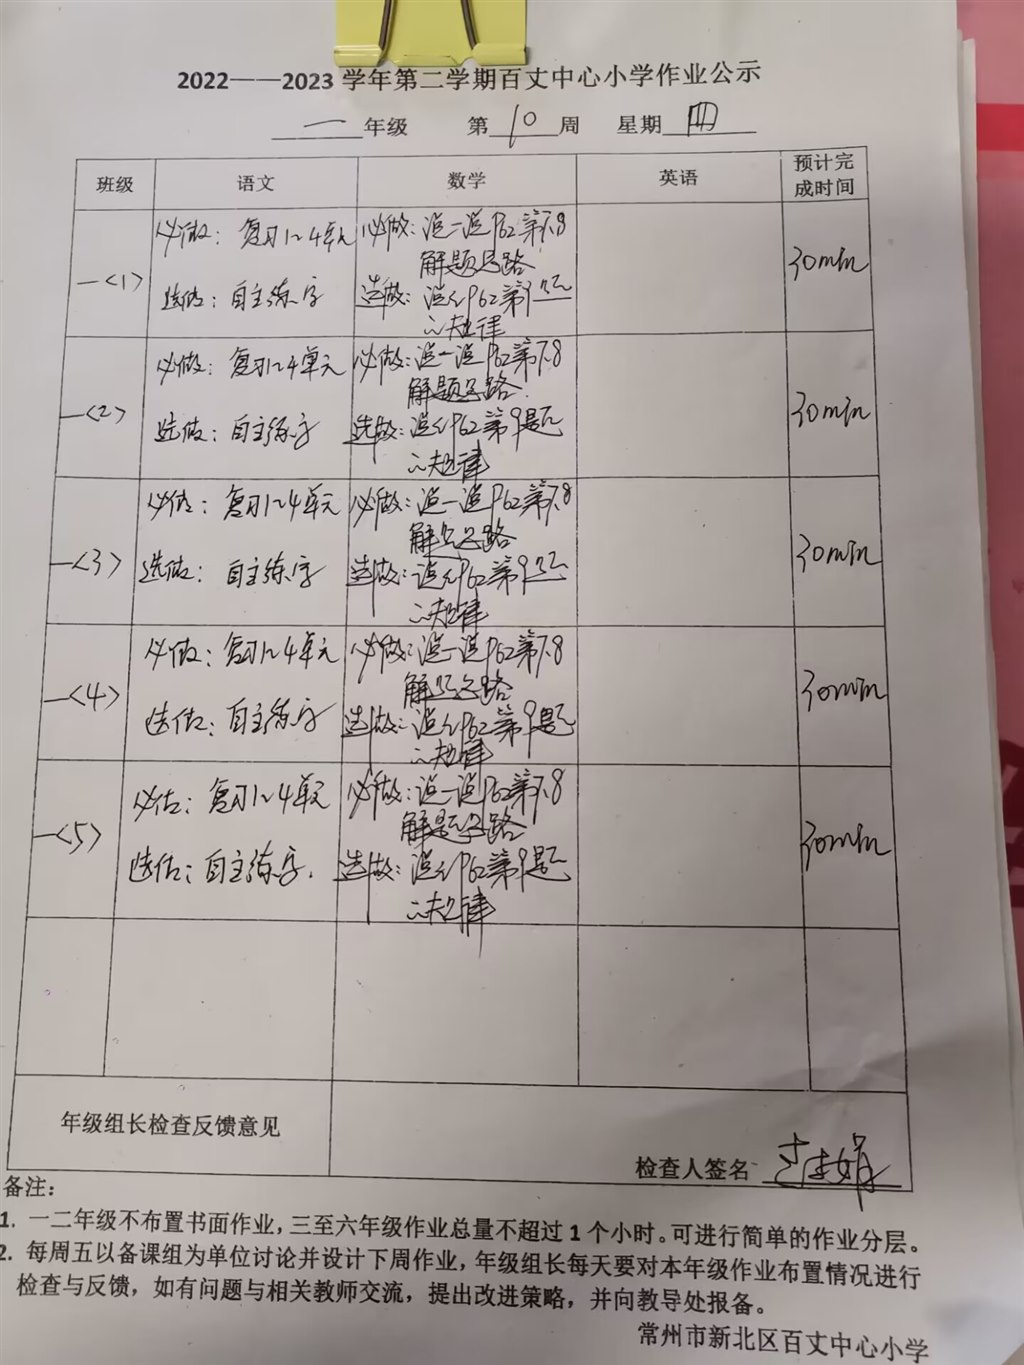 2022——2023 学年第二学期百丈中心小学作业公示
一年级 第10周 星期四
班级 语文 数学 英语 预计完成时间
一<1> 必做：复习1~4单元 必做：说一说P62第7.8 30min
解题思路
选做：自主练字 选做：说说P62第9题
的规律
一<2> 必做：复习1~4单元 必做：说一说P62第7.8 30min
解题思路.
选做：自主练字 选做：说说P62第9题
的规律
一<3> 必做：复习1~4单元 必做：说一说P62第7.8 30min
解题思路
选做：自主练字 选做：说说P62第9题
的规律
一<4> 必做：复习1~4单元 必做：说一说P62第7.8 30min
解题思路
选做：自主练字 选做：说说P62第9题
的规律
一<5> 必做：复习1~4单元 必做：说一说P62第7.8 30min
解题思路
选做：自主练字. 选做：说说P62第9题
的规律
年级组长检查反馈意见
检查人签名
备注：
1. 一二年级不布置书面作业，三至六年级作业总量不超过 1 个小时。可进行简单的作业分层。
2. 每周五以备课组为单位讨论并设计下周作业，年级组长每天要对本年级作业布置情况进行
检查与反馈，如有问题与相关教师交流，提出改进策略，并向教导处报备。
常州市新北区百丈中心小学